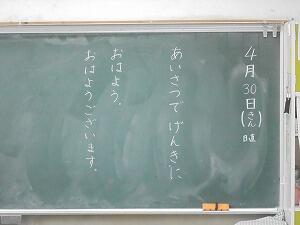 4月30日(きん)
日直
あいさつでげんきに
おはよう。
おはようございます。